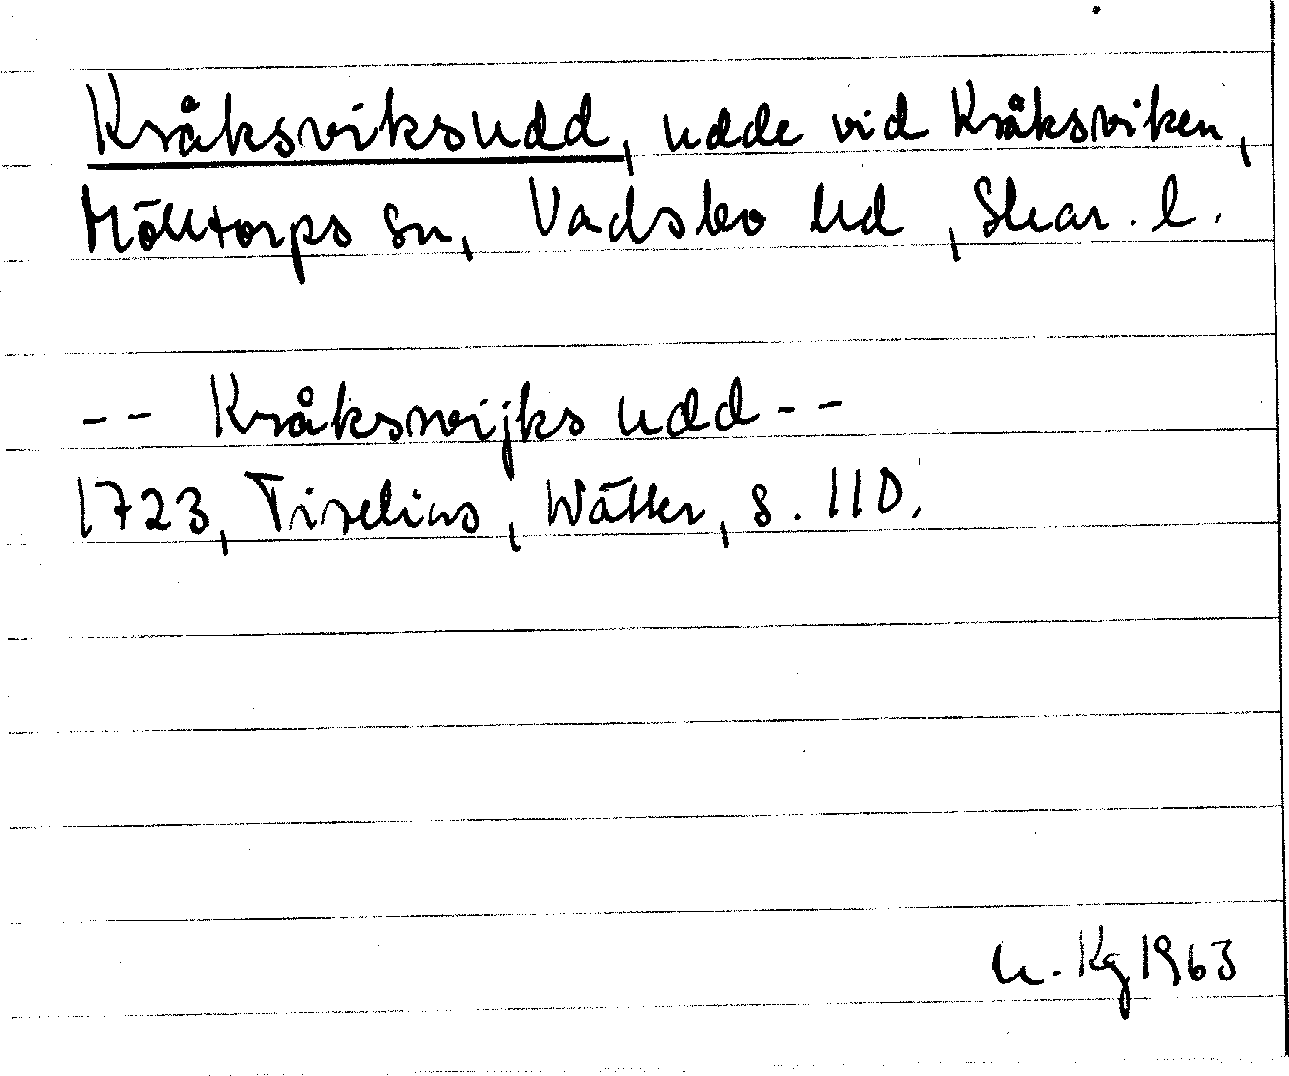 Kråksviksudd, udde vid Kråksviken,
Mölltorps sn, Vadsbo hd, Skar. l.
-- Kråkswijks udd --
1723, Tiselius, Wätter, s. 110.
Kg 1963